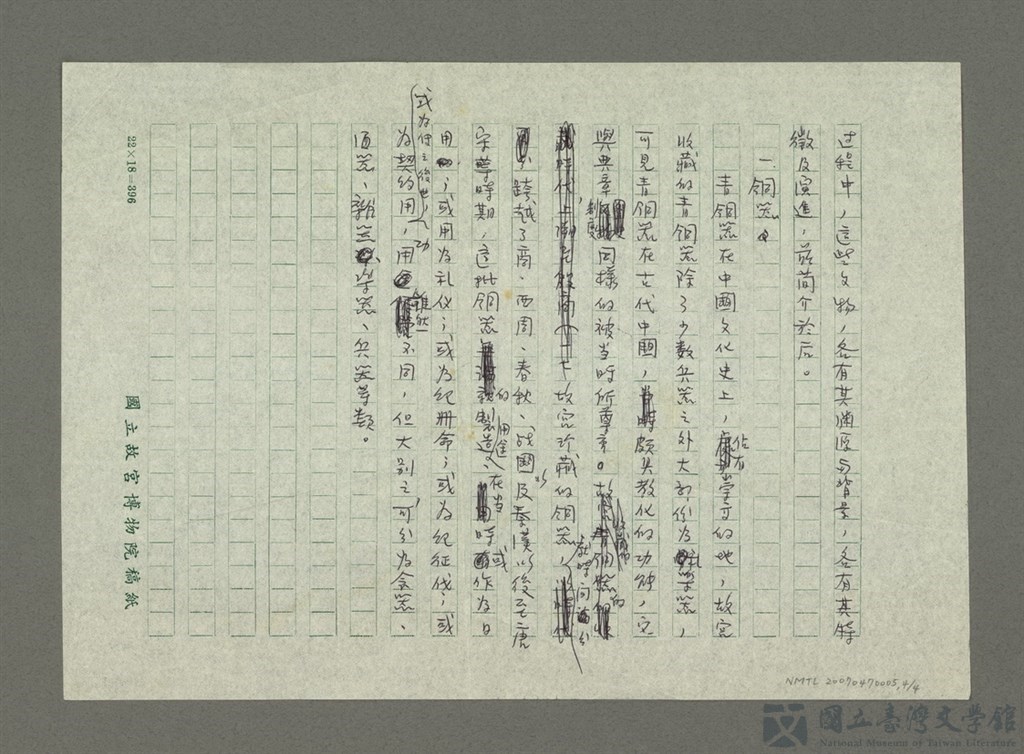 过程中，這些文物，各有其淵源与背景，各有其特
徵及演進，茲简介於后。
一、銅器。
青銅器在中國文化史上，佔有崇高的地，故宮
收藏的青銅器除了少數兵器之外大部份為礼樂器，
可見青銅器在古代中國，頗具教化的功能，
與典章制度同樣的被当時所尊
故宮珍藏的銅器，就時間
跨越了商、西周、春秋、战國及秦漢以後至唐
宋等時期，這批銅器的用途，在当時或作為日
用；或用為礼仪；或為紀册命；或為紀征伐；或
為契約用，用雖然不同，但大别之，可分為食器、
酒器、樂器、兵器等類。
22×18=396
國立故宮博物院稿紙
NMTL 20070470005,4/4
國立臺灣文學館
National Museum of Taiwan Literature